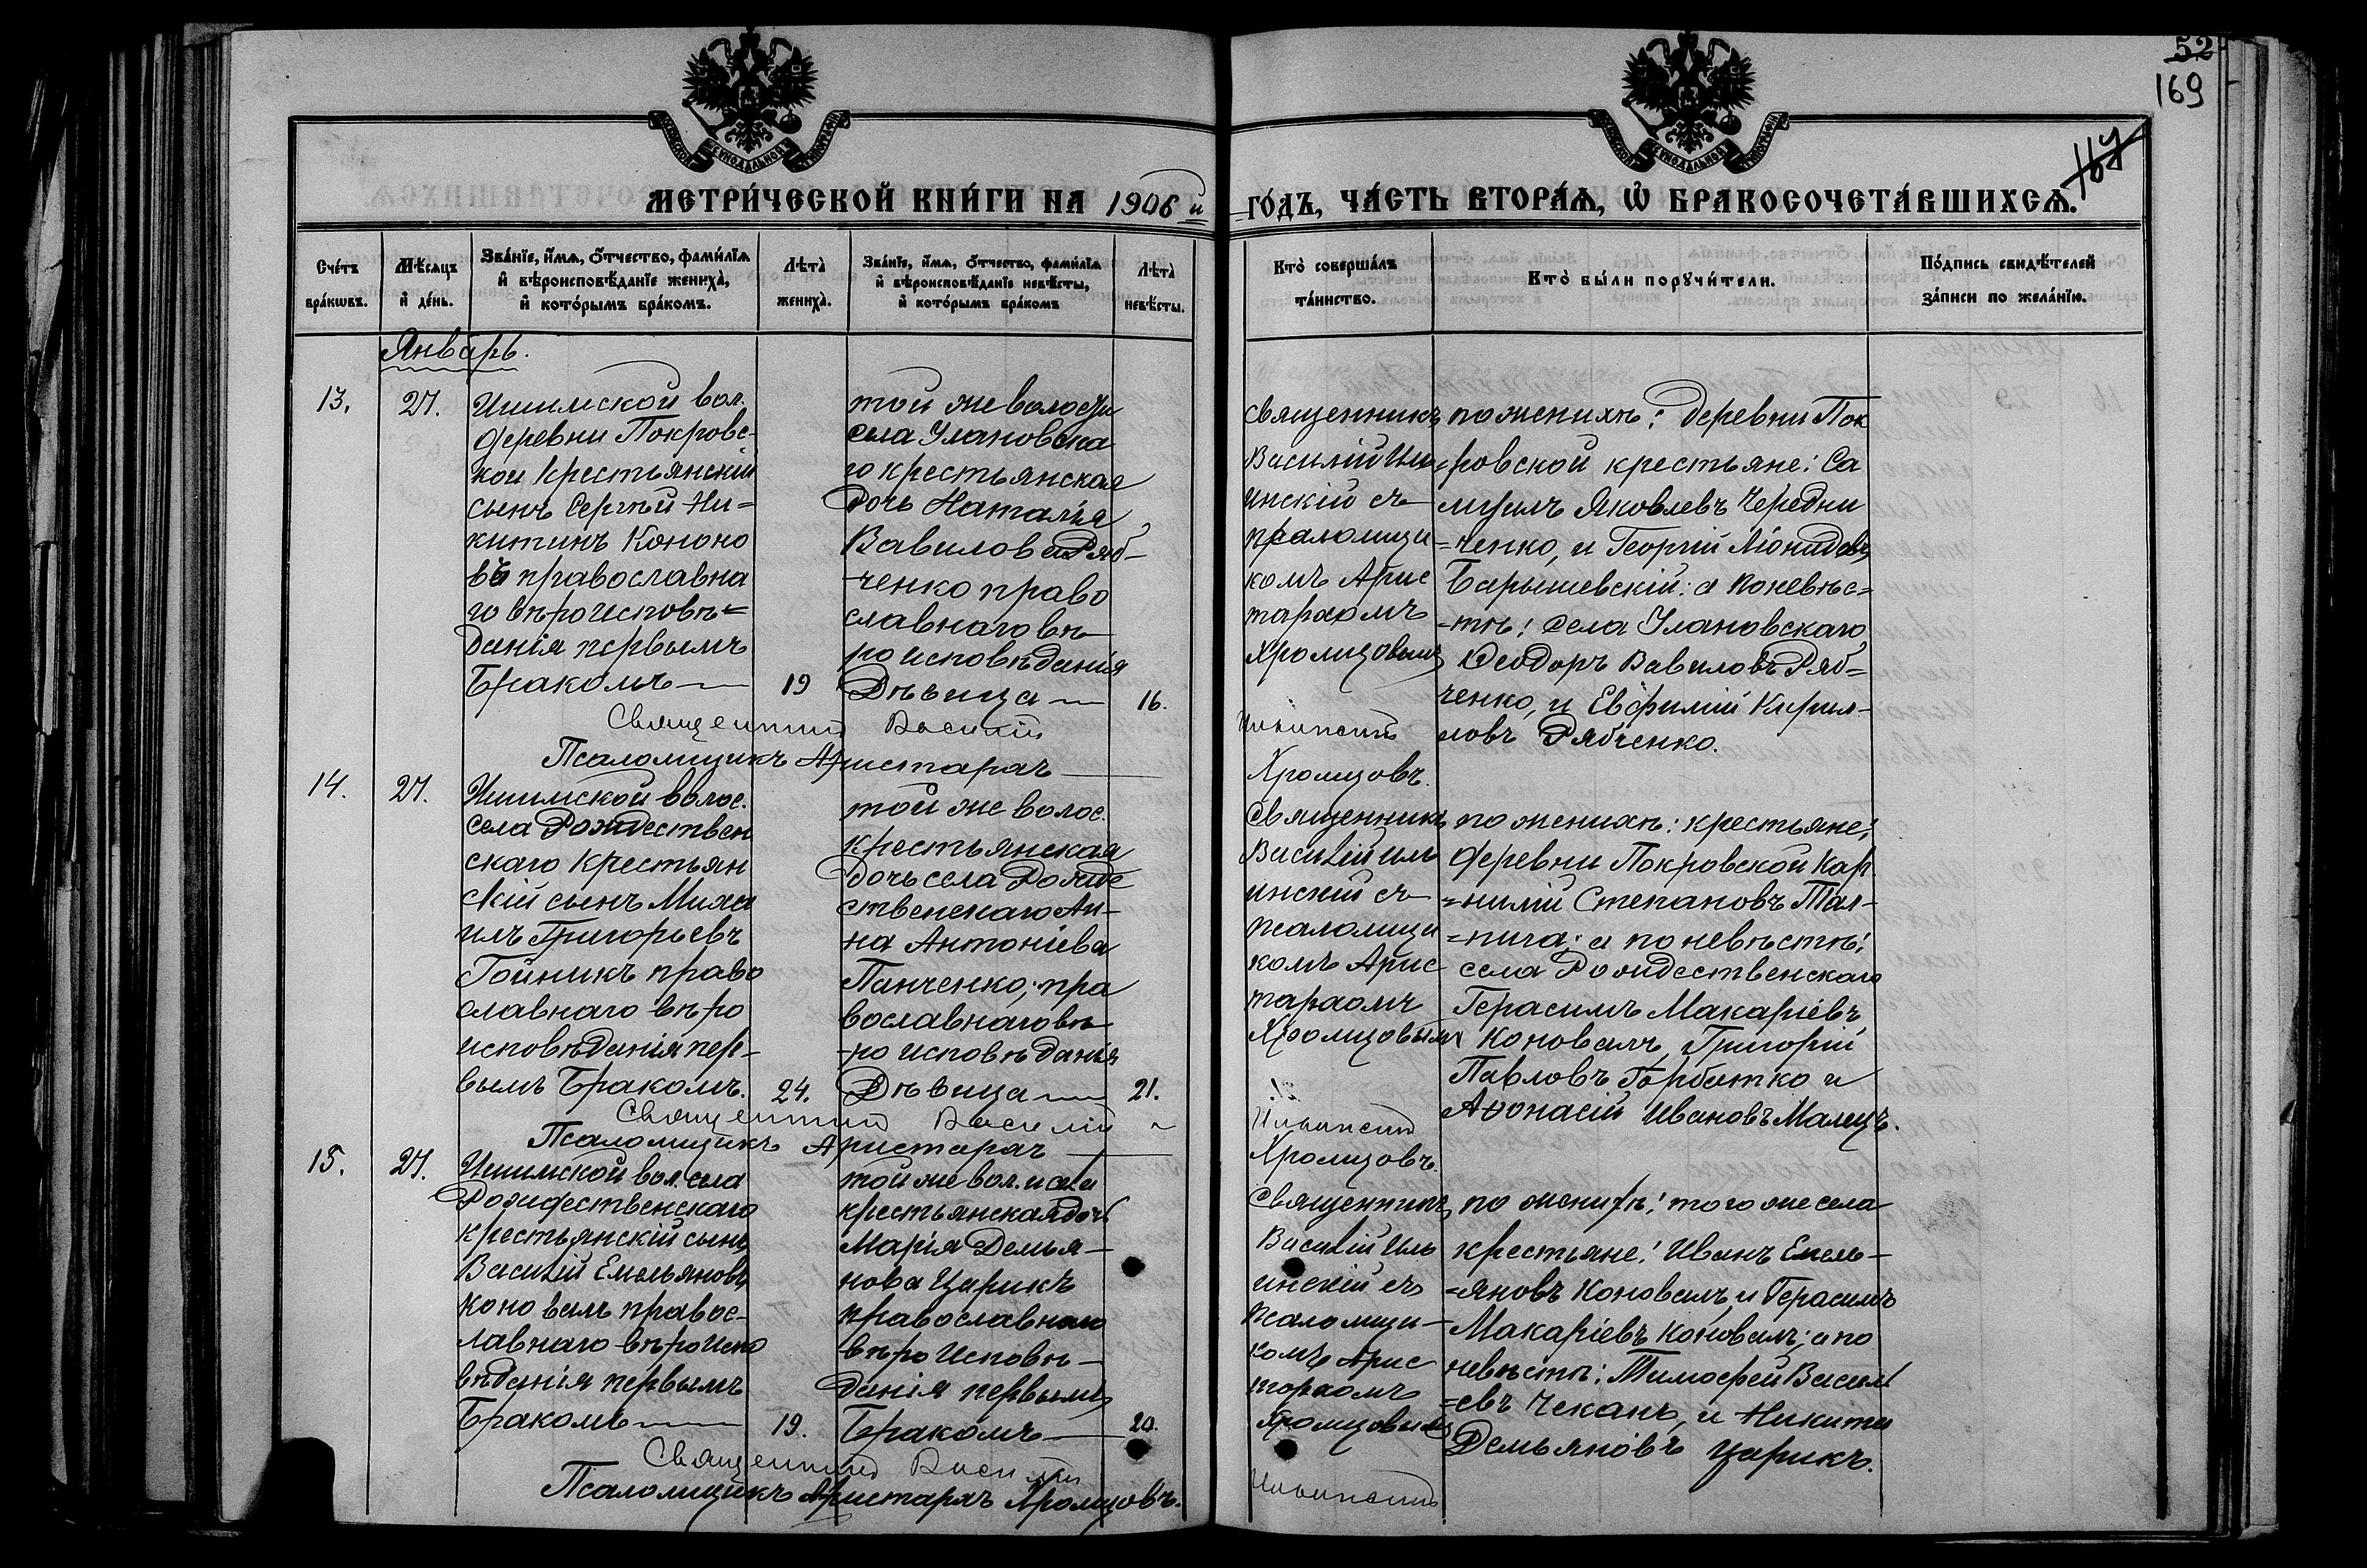 52
169
167
МЕТРИ́ЧЕСКОЙ КНИ́ГИ НА 1906 й ГО́ДЪ, ЧА́СТЬ ВТОРА́Я, Ѡ БРАКОСОЧЕТА́ВШИХСЯ.
Сче́тъ бра́ковъ.
Мѣ́сяцъ и де́нь.
Зва́нїе, и́мя, о́тчество, фами́лїя
и вѣроисповѣ́данїе жениха̀,
и кото́рымъ бра́комъ.
Лѣта̀ жениха̀.
Зва́нїе, и́мя, о́тчество, фами́лїя
и вѣроисповѣ́данїе невѣ́сты,
и кото́рымъ бра́комъ
Лѣта̀ невѣ́сты.
Кто̀ соверша́лъ
та́инство.
Кто̀ бы́ли поручи́тели.
По́дпись свидѣ́телей
за́писи по жела́нїю.
Январь.
13.
27.
Ишимской вол.
деревни Покровс-
кой крестьянскій
сынъ Сергѣй Ни=
китинъ Кононо
въ православна
го вѣроисповѣ=
данія первымъ
бракомъ
19
той же волости
села Улановска
го крестьянская
дочь Наталія
Вавилова Ряб-
ченко право
славнаго вѣ
роисповѣданія
Дѣвица
16.
Священникъ
Василій Иль
инскій съ
псаломщи
комъ Арис
тархомъ
Хромцовымъ
по женихѣ: деревни Пок
=ровской крестьяне: Са
муилъ Яковлевъ Чередни
=ченко, и Георгій Леонидовъ
Барышевскій: а по невѣс=
=тѣ: села Улановскаго
Ѳеодоръ Вавиловъ Ряб=
ченко, и Евфимій Кирил-
ловъ Рябченко.
Священникъ Василій Ильинскій
Псаломщикъ Аристархъ Хромцовъ.
14.
27.
Ишимской волос.
села Рождествен
скаго крестьян
скій сынъ Миха
илъ Григорьевъ
Гойникъ право
славнаго вѣро
исповѣданія пер-
вымъ бракомъ.
24.
той же волос.
крестьянская
дочь села Рожде
ственскаго Ан-
на Антоніева
Панченко; пра
вославнаго вѣ
-роисповѣданія
Дѣвица
21.
Священникъ
Василій Иль
инскій съ
псаломщи
комъ Арис
тархомъ
Хромцовымъ
по женихѣ: крестьяне;
деревни Покровской Кор
=нилій Степановъ Тал-
=пига; а по невѣстѣ:
села Рождественскаго
Герасимъ Макаріевъ
Коновалъ, Григорій
Павловъ Горбатко и
Аѳонасій Ивановъ Малецъ.
Священникъ Василій Ильинскій
Псаломщикъ Аристархъ Хромцовъ.
15.
27.
Ишимской вол. села
Рождественскаго
крестьянскій сынъ
Василій Емельяновъ
Коновалъ правос-
лавнаго вѣроиспо
вѣданія первымъ
бракомъ
19.
той же вол. и села
крестьянская дочь
Марія Демья-
нова Царикъ
православнаго
вѣроисповѣ-
данія первымъ
бракомъ
20.
Священникъ
Василій Иль
инскій съ
псаломщи-
комъ Арис
тархомъ
Хромцовымъ
по женихѣ: того же села
крестьяне: Иванъ Емель-
=яновъ Коновалъ, и Герасимъ
Макаріевъ Коновалъ; а по
невѣстѣ: Тимоѳей Василь
=евъ Чеканъ, и Никита
Демьяновъ Царикъ.
Священникъ Василій Ильинскій
Псаломщикъ Аристархъ Хромцовъ.